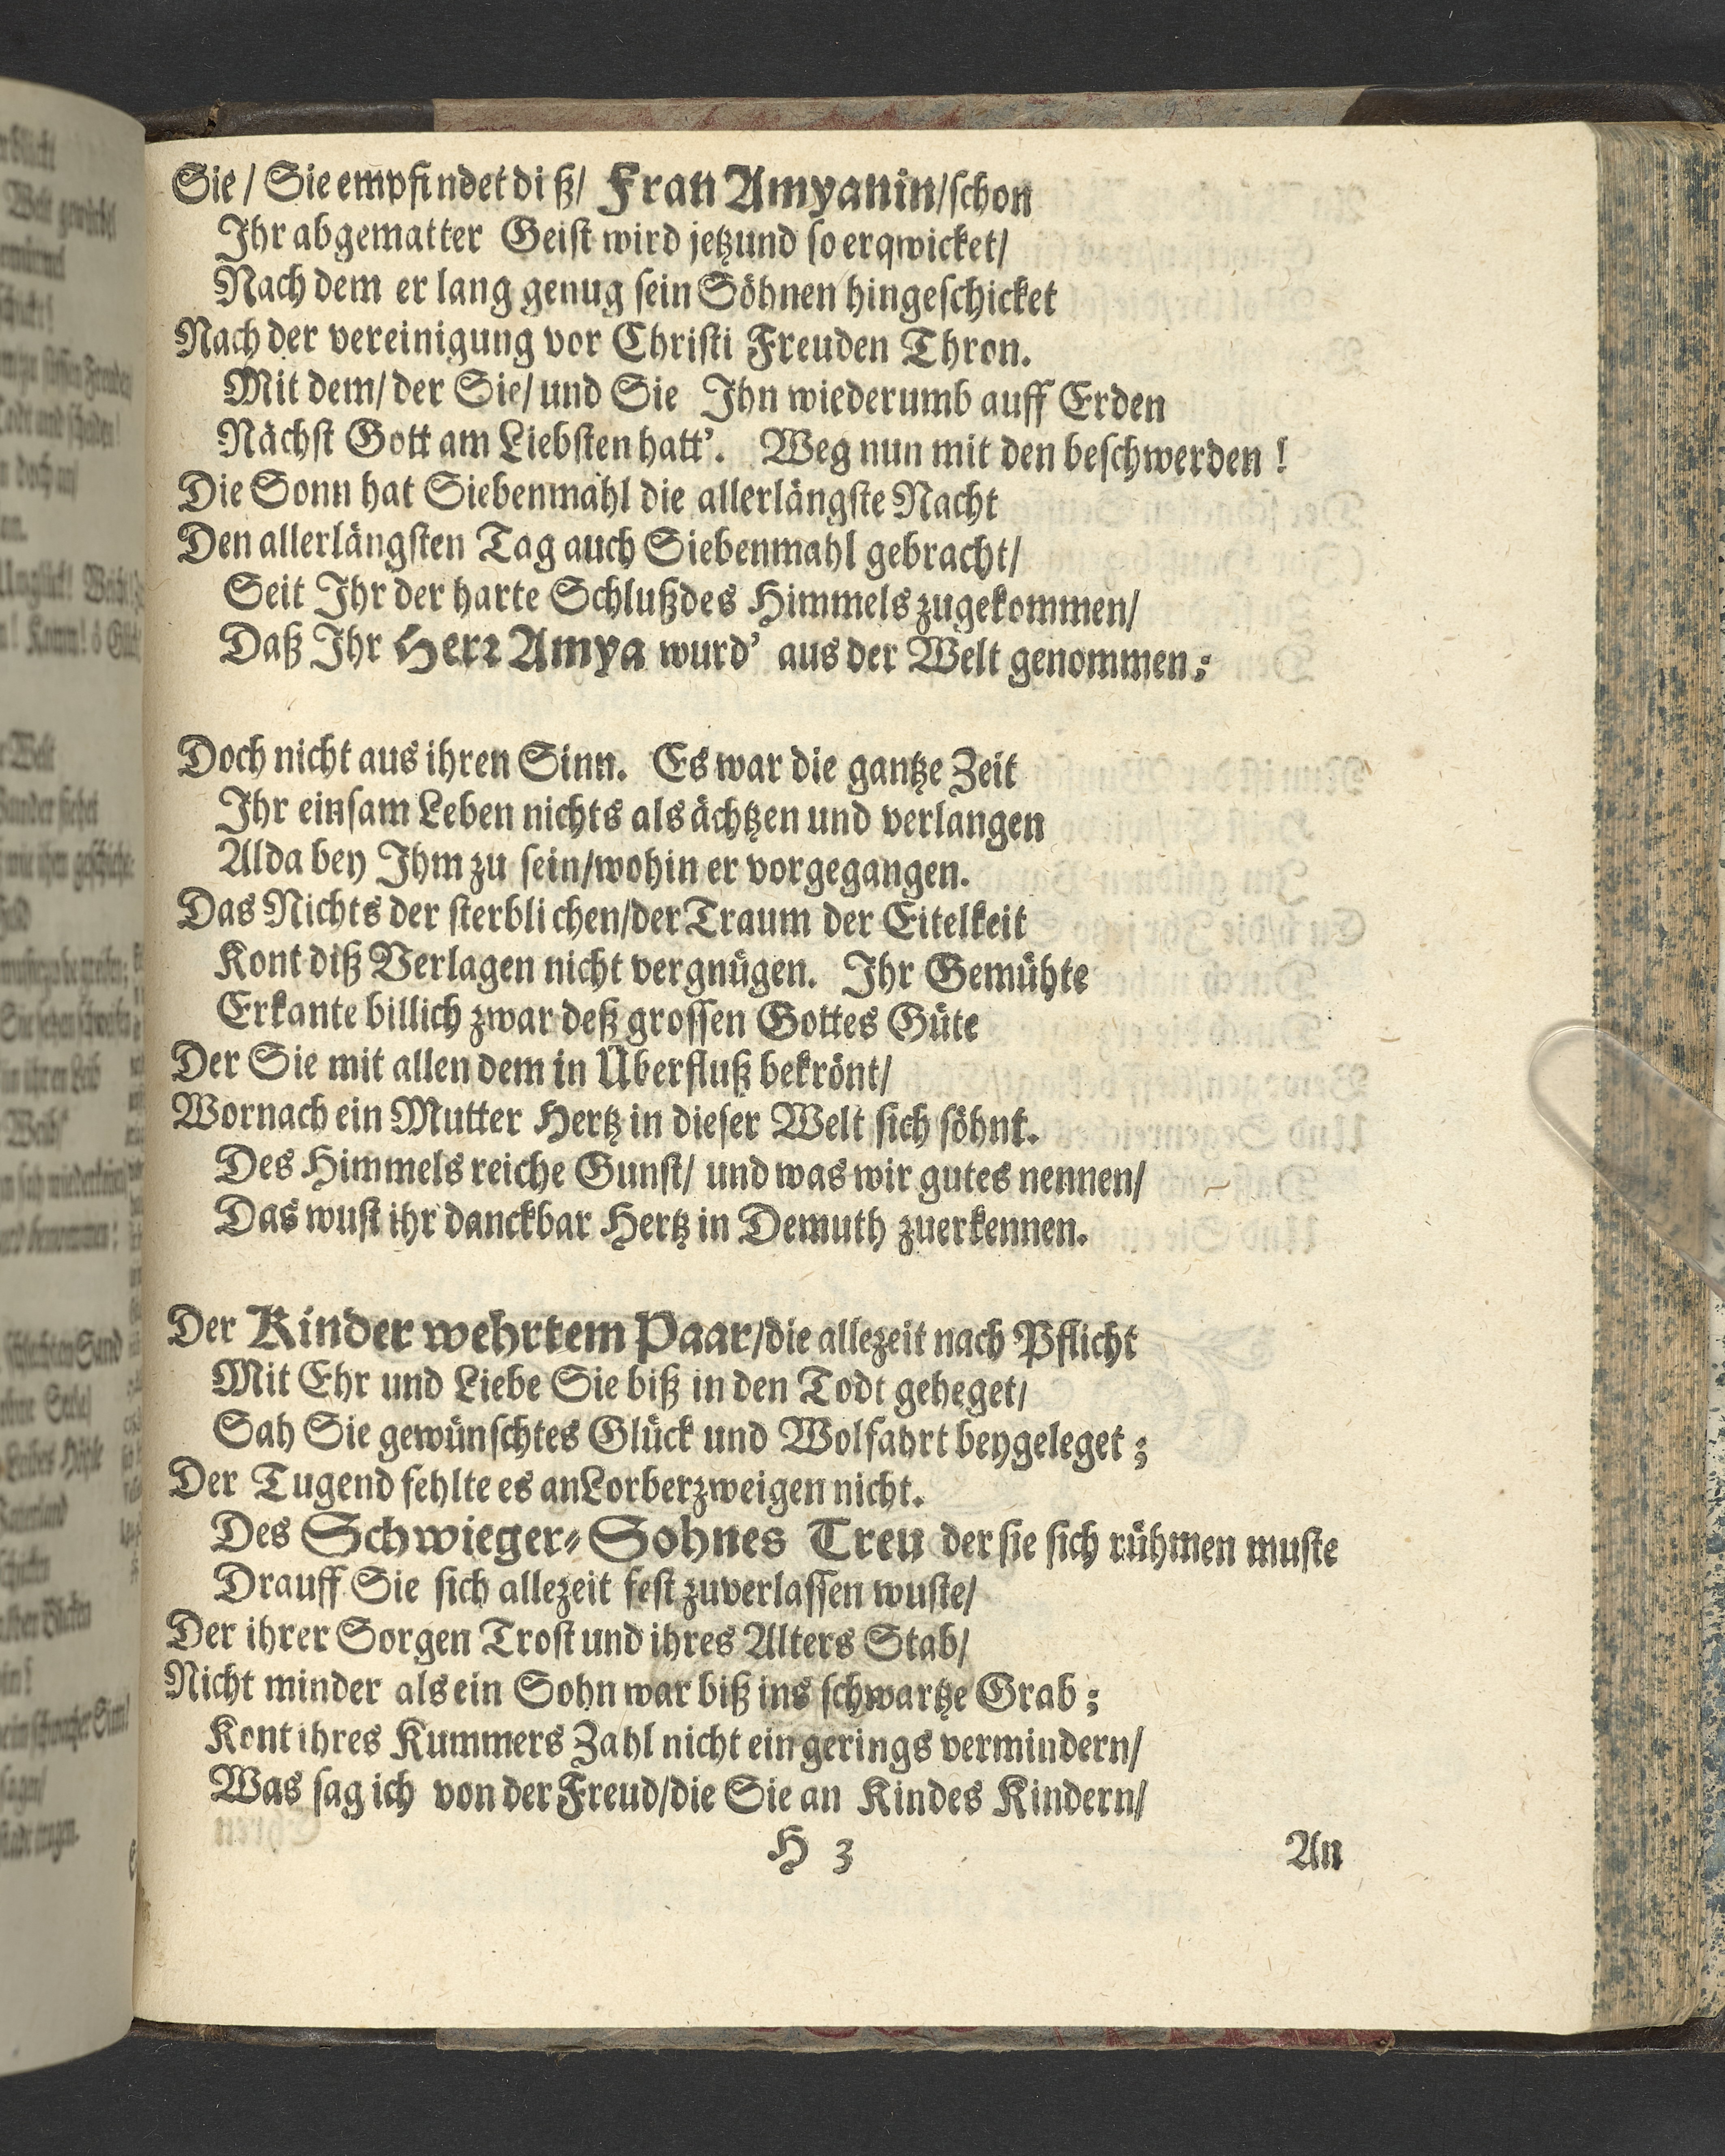 Sie / Sie empfindet diß/ Frau Amyanin/schon
Ihr abgematter Geist wird jetzund so erqwicket/
Nach dem er lang genug sein Söhnen hingeschicket
Nach der vereinigung vor Christi Freuden Thron.
Mit dem/ der Sie/ und Sie Ihn wiederumb auff Erden
Nächst Gott am Liebsten hatt’. Weg nun mit den beschwerden !
Die Sonn hat Siebenmahl die allerlängste Nacht
Den allerlängsten Tag auch Siebenmahl gebracht/
Seit Ihr der harte Schluß des Himmels zugekommen/
Daß Ihr Herr Amya wurd’ aus der Welt genommen;
Doch nicht aus ihren Sinn. Es war die gantze Zeit
Ihr einsam Leben nichts als ächtzen und verlangen
Alda bey Ihm zu sein/wohin er vorgegangen.
Das Nichts der sterblichen/der Traum der Eitelkeit
Kont diß Verlagen nicht vergnügen. Ihr Gemühte
Erkante billich zwar deß grossen Gottes Güte
Der Sie mit allen dem in Überfluß bekrönt/
Wornach ein Mutter Hertz in dieser Welt sich söhnt.
Des Himmels reiche Gunst/ und was wir gutes nennen/
Das wust ihr danckbar Hertz in Demuth zuerkennen.
Der Kinder wehrtem Paar/die allezeit nach Pflicht
Mit Ehr und Liebe Sie biß in den Todt geheget/
Sah Sie gewünschtes Glück und Wolfahrt beygeleget ;
Der Tugend fehlte es an Lorberzweigen nicht.
Des Schwieger-Sohnes Treu der sie sich rühmen muste
Drauff Sie sich allezeit fest zuverlassen wuste/
Der ihrer Sorgen Trost und ihres Alters Stab/
Nicht minder als ein Sohn war biß ins schwartze Grab ;
Kont ihres Kummers Zahl nicht ein gerings vermindern/
Was sag ich von der Freud/die Sie an Kindes Kindern/
H 3 An